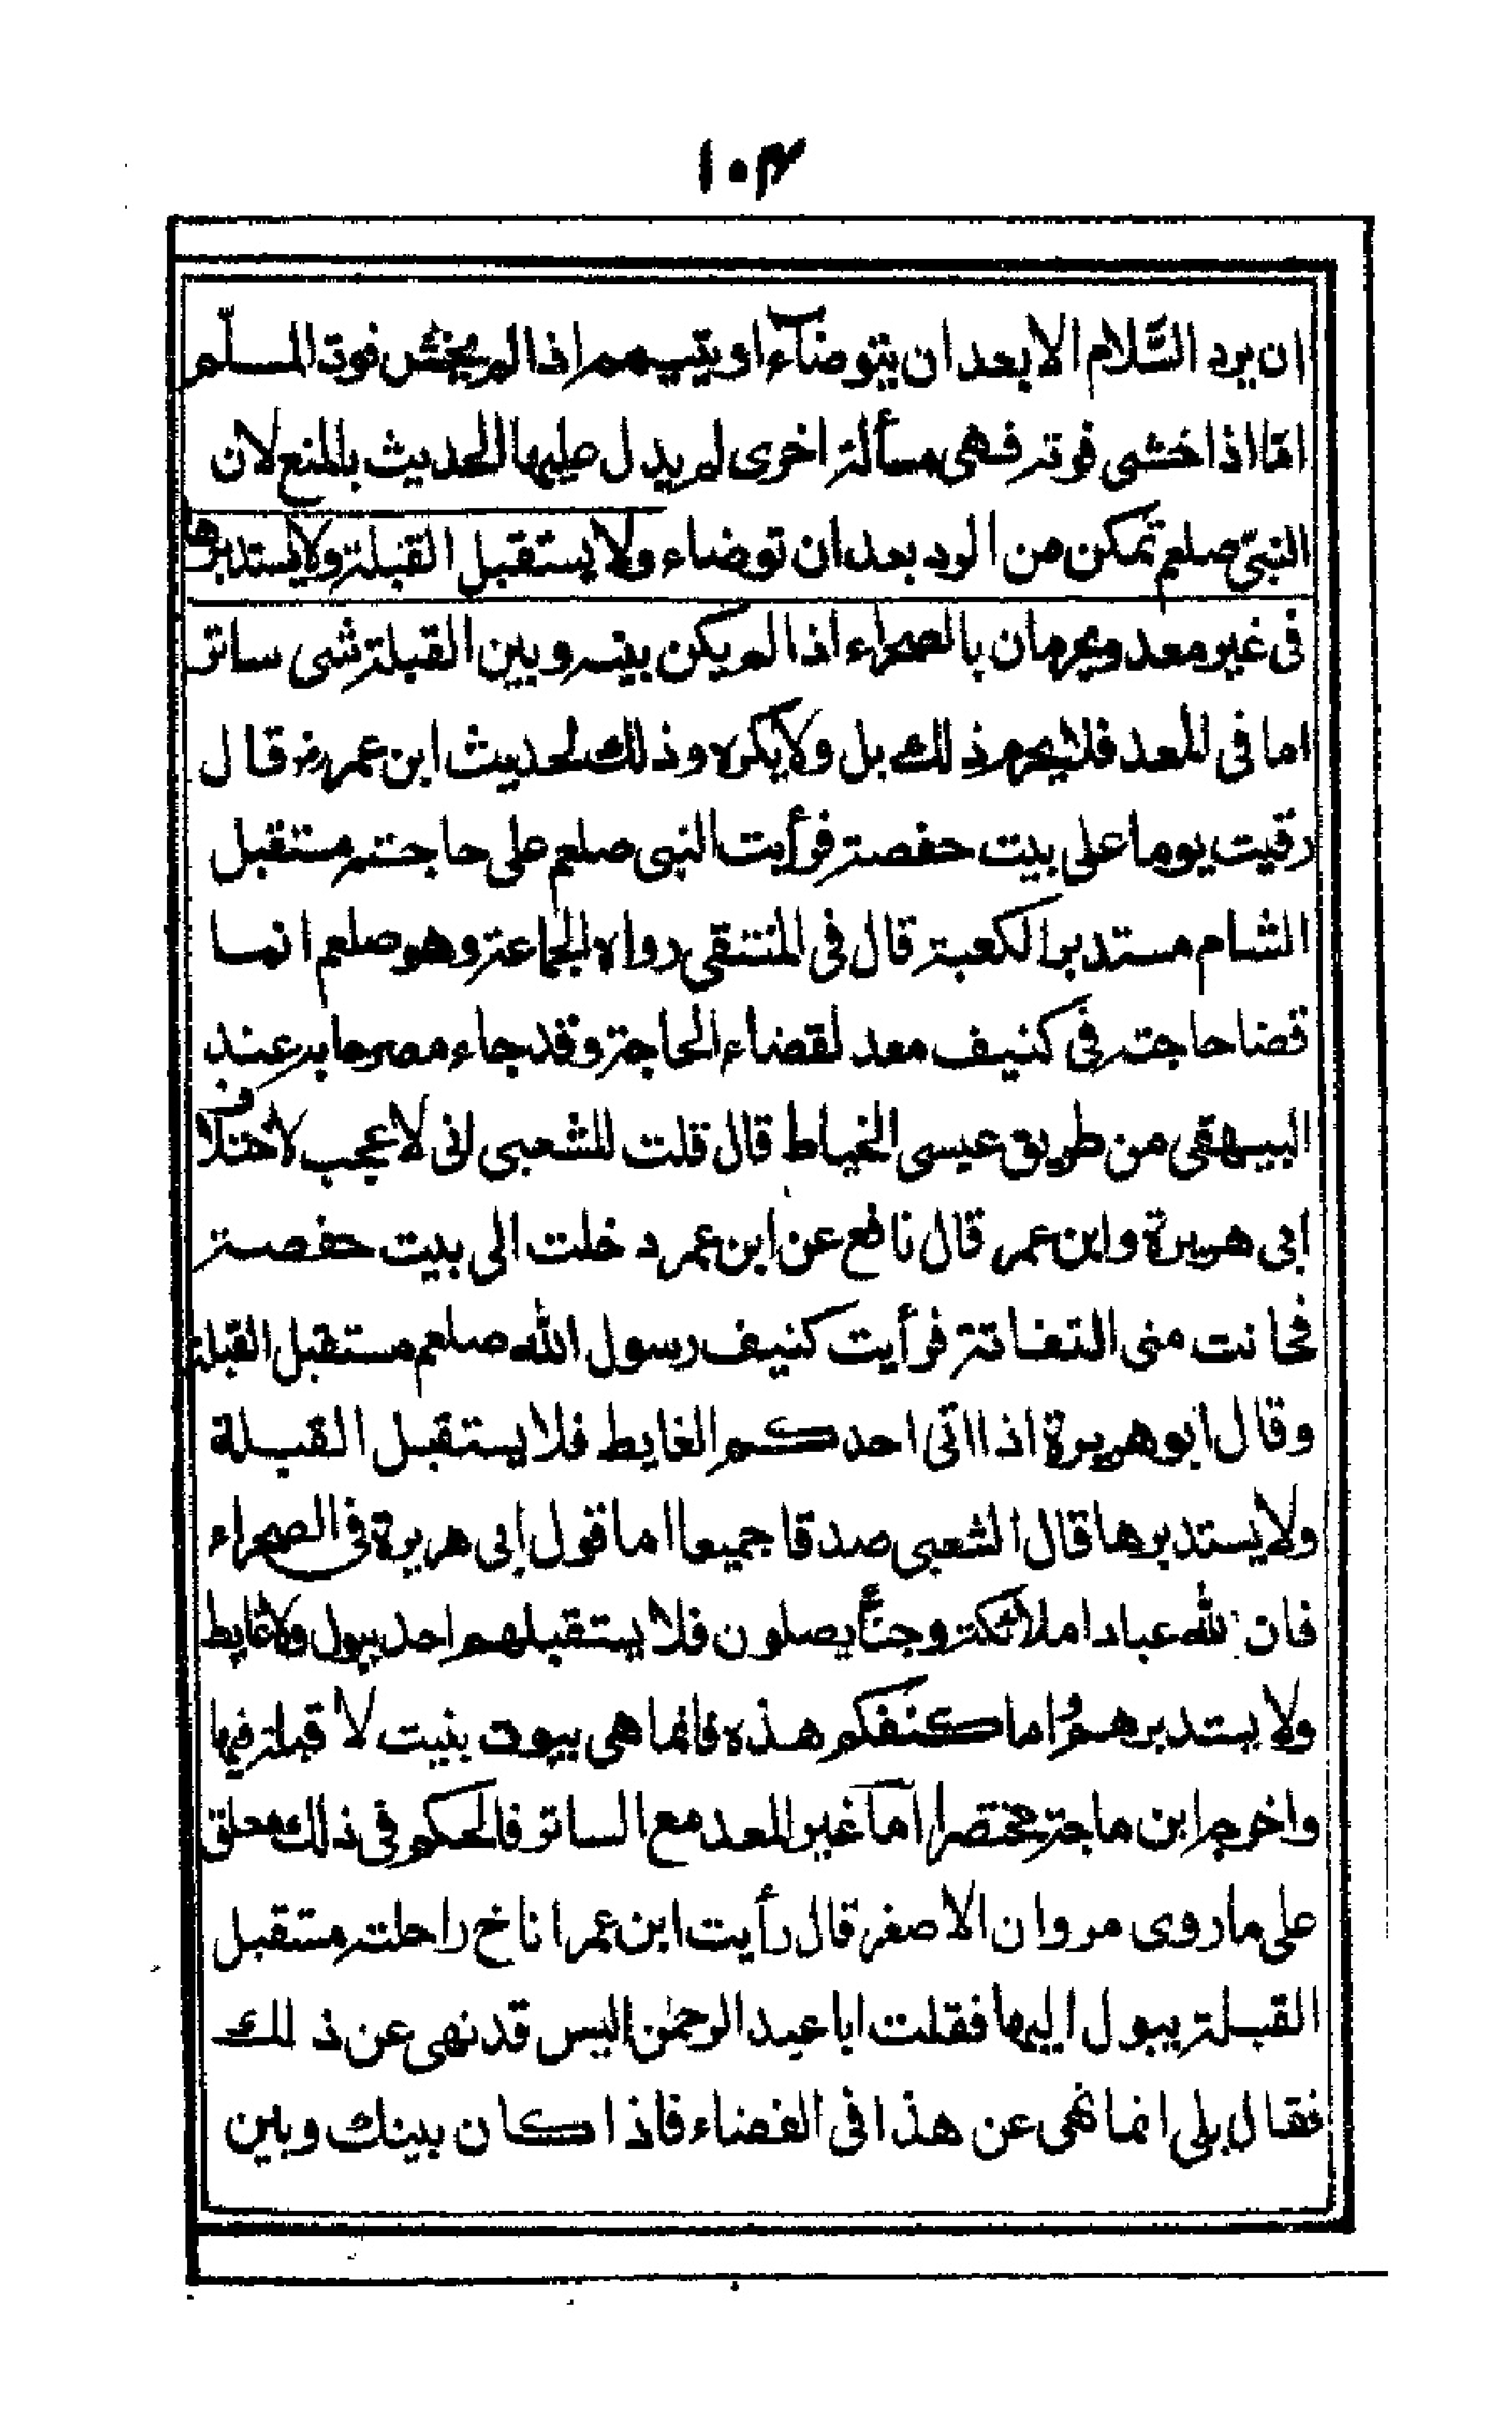 ١٠٣
ان يرد السّلام الا بعد ان يتوضاء او يتيمم اذا لم يخش فوت المسلّم
امّا اذا خشى فوته فهى مسألة اخرى لم يدل عليها الحديث بالمنع لان
النبىّ صلعم تمكن من الرد بعد ان توضاء ولا يستقبل القبلة ولا يستدبرها
فى غير معد ويحرمان بالصحراء اذا لم يكن بينه وبين القبلة شى ساتر
اما فى المعد فلا يحرم ذلك بل ولا يكره وذلك لحديث ابن عمر رضـ قال
رقيت يوما على بيت حفصة فرأيت النبى صلعم على حاجته مستقبل
الشام مستدبر الكعبة قال فى المنتقى رواه الجماعة وهو صلعم انما
قضا حاجته فى كنيف معد لقضاء الحاجة وقد جاء مصرحا به عند
البيهقى من طريق عيسى الخياط قال قلت للشعبى انى لاعجب لاختلاف
ابى هريرة وابن عمر قال نافع عن ابن عمر دخلت الى بيت حفصة
فحانت منى التفاتة فرأيت كنيف رسول الله صلعم مستقبل القبلة
وقال ابو هريرة اذا اتى احدكم الغايط فلا يستقبل القبلة
ولا يستدبرها قال الشعبى صدقا جميعا اما قول ابى هريرة فى الصحراء
فان لله عبادا ملائكة وجنّا يصلون فلا يستقبلهم احد ببول ولا غايط
ولا يستدبرهم واما كنفكم هذه فانما هى بيوت بنيت لا قبلة فيها
واخرجه ابن ماجة مختصرا امّا غير المعد مع الساتر فالحكم فى ذلك معلق
على ما روى مروان الاصفر قال رأيت ابن عمر اناخ راحلته مستقبل
القبلة يبول اليها فقلت ابا عبد الرحمٰن اليس قد نهى عن ذلك
فقال بلى انما نهى عن هذا فى الفضاء فاذا كان بينك وبين